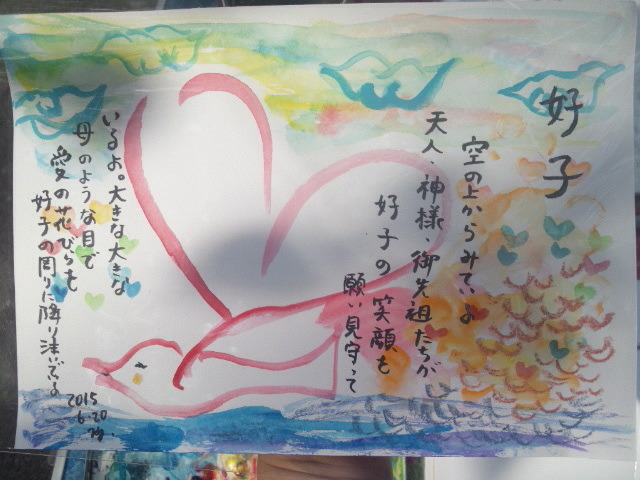 好子
空の上からみているよ
天人、神様、御先祖たちが
好子の笑顔を
願い見守って
いるよ。大きな大きな
母のような目で
愛の花びらも
好子の周りに降り注いでる
2015
6.20